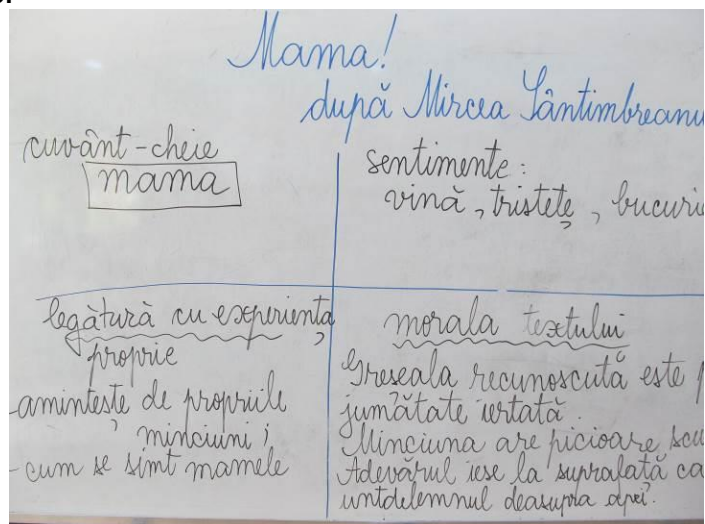 Mama!
după Mircea Sântimbreanu
cuvânt-cheie
mama
sentimente:
vină, tristețe, bucurie
legătură cu experiența
proprie
-amintește de propriile
minciuni;
-cum se simt mamele
morala textului
Greșeala recunoscută este
jumătate iertată.
Minciuna are picioare scu
Adevărul iese la suprafață ca
untdelemnul deasupra apei.